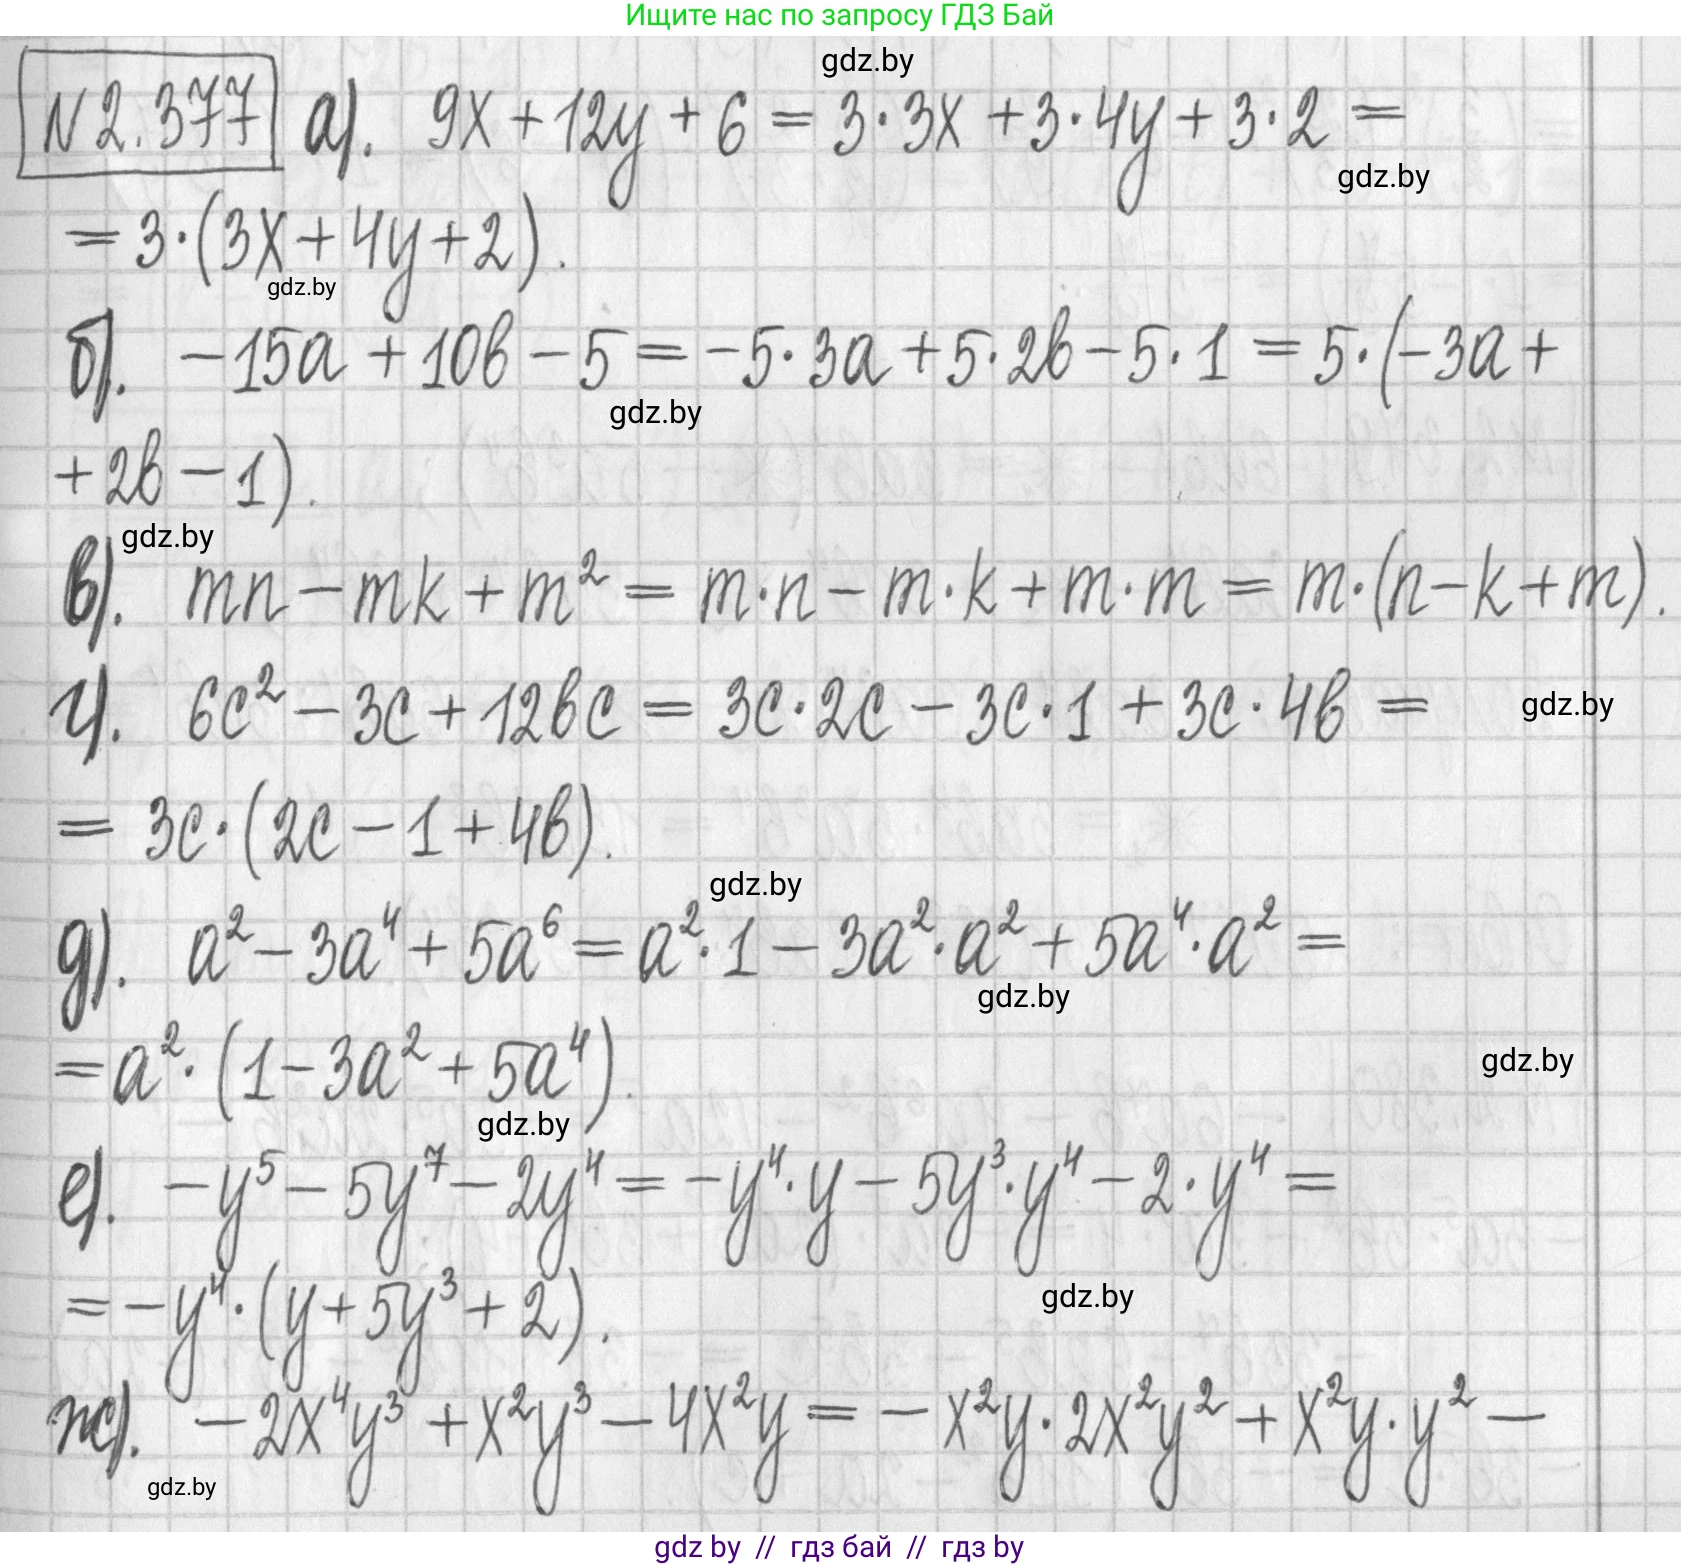 Ищите нас по запросу ГДЗ Бай
gdz.by
N 2.377 а). 9x + 12y + 6 = 3·3x + 3·4y + 3·2 =
gdz.by
= 3·(3x + 4y + 2).
gdz.by
б). -15a + 10b - 5 = -5·3a + 5·2b - 5·1 = 5·(-3a +
gdz.by
+ 2b - 1).
gdz.by
в). mn - mk + m² = m·n - m·k + m·m = m·(n - k + m).
г). 6c² - 3c + 12bc = 3c·2c - 3c·1 + 3c·4b =
gdz.by
= 3c·(2c - 1 + 4b).
gdz.by
д). a² - 3a⁴ + 5a⁶ = a²·1 - 3a²·a² + 5a⁴·a² =
gdz.by
= a²·(1 - 3a² + 5a⁴).
gdz.by
gdz.by
е). -y⁵ - 5y⁷ - 2y⁴ = -y⁴·y - 5y³·y⁴ - 2·y⁴ =
gdz.by
= -y⁴·(y + 5y³ + 2).
ж). -2x⁴y³ + x²y³ - 4x²y = -x²y·2x²y² + x²y·y² -
gdz.by
gdz by // гдз бай // гдз by